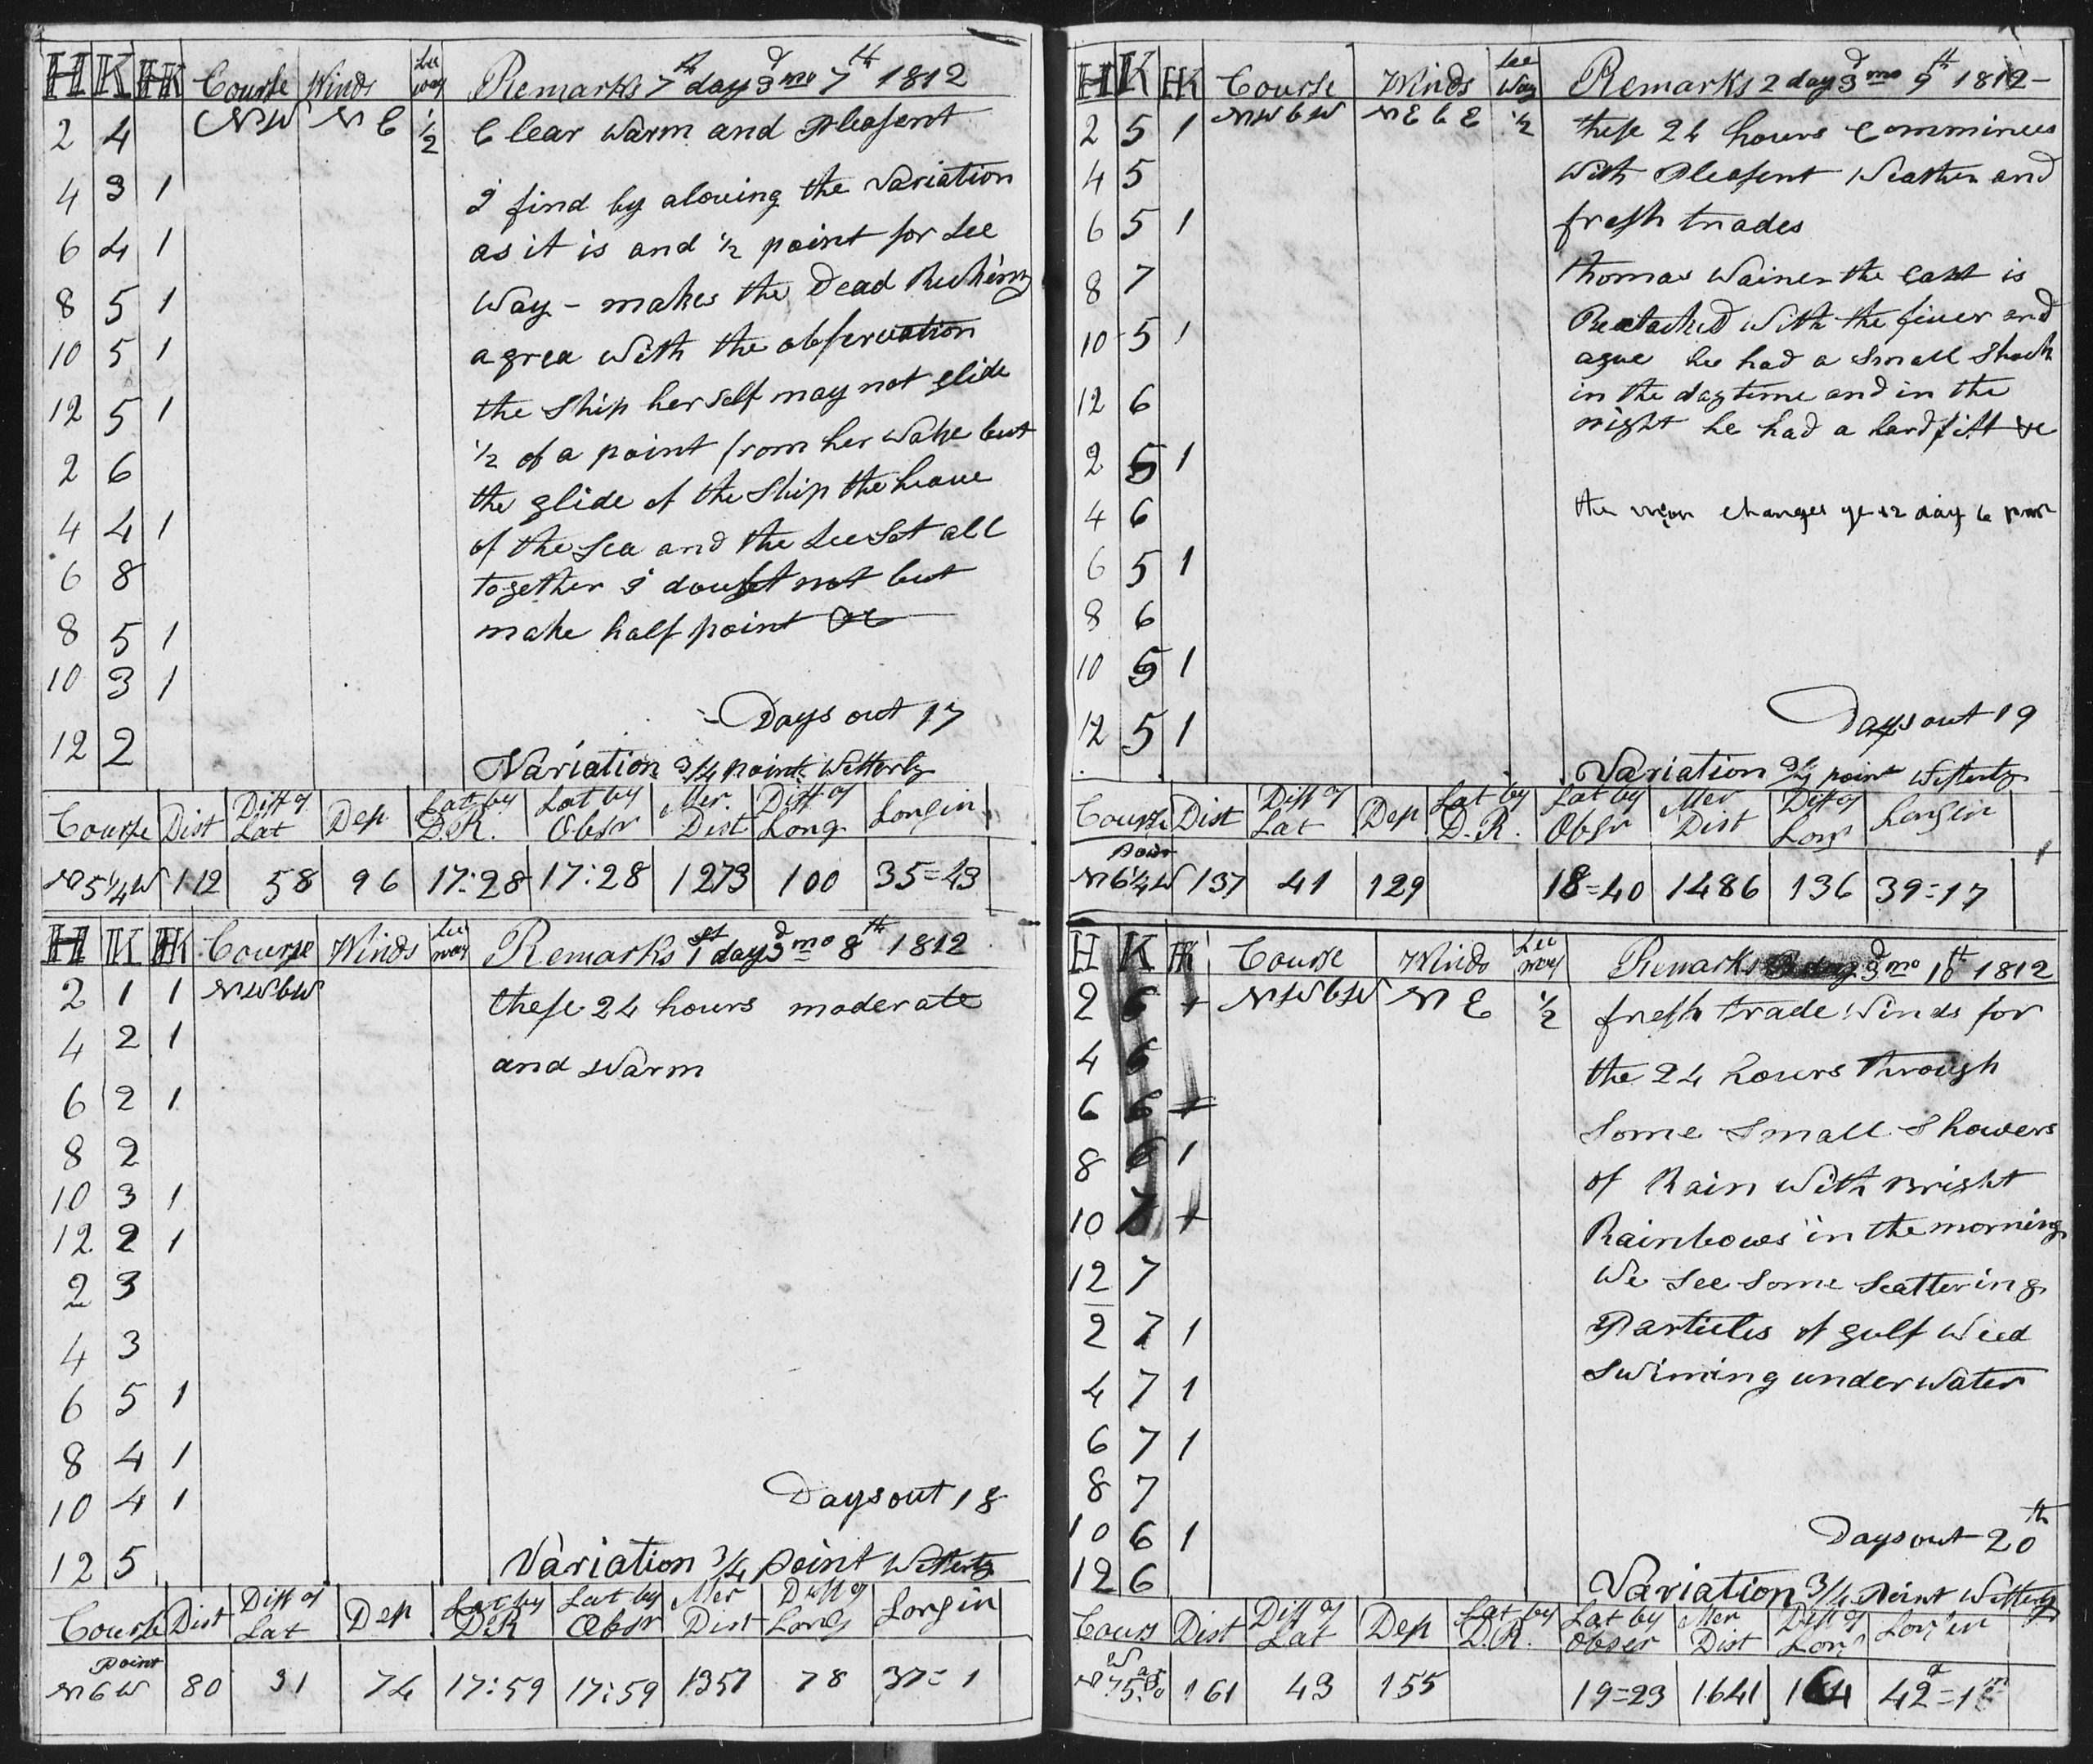 H K HK Course Winds Lee way Remarks 7th day 3d mo 7th 1812
2 4 NW NE 1/2 Clear Warm and Pleasent
4 3 1 I find by alowing the Variation
6 4 1 as it is and 1/2 point for Lee
8 5 1 Way - makes the Dead Reckning
10 5 1 agrea With the observation
12 5 1 the Ship her self may not glide
2 6 1/2 of a point from her Wake but
4 4 1 the glide of the Ship the heave
6 8 of the Sea and the Lee Set all
8 5 1 together I doubt not but
10 3 1 make half point &c
12 2
Days out 17
Variation 3/4 point Westerly
Course Dist Diff of Lat Dep Lat by D.R. Lat by Obsr Mer. Dist Diff of Long Long in
N 5 1/4 W 112 58 96 17:28 17:28 1273 100 35=43
H K HK Course Winds Lee way Remarks 1st day 3d mo 8th 1812
2 1 1 NWbW these 24 hours moderate
4 2 1 and Warm
6 2 1
8 2
10 3 1
12 2 1
2 3
4 3
6 5 1
8 4 1
10 4 1
12 5
Days out 18
Variation 3/4 point Westerly
Course Dist Diff of Lat Dep Lat by D.R Lat by Obsr Mer Dist Diff of Long Long in
Point
N 6 W 80 31 74 17:59 17:59 1357 78 37=1
H K HK Course Winds Lee Way Remarks 2 day 3d mo 9th 1812
2 5 1 NWbW NEbE 1/2 these 24 hours Comminces
4 5 With Pleasent Weather and
6 5 1 fresh trades
8 7 thomas Wainer the
10 5 1 With the fiver and
12 6 ague he had a Small Shock
2 5 1 in the daytime and in the
4 6 night he had a hard fitt &c
6 5 1 the moon changes ye 12 day 6
8 6
10 5 1
12 5 1
Days out 19
Variation 3/4 point Westerly
Course Dist Diff of Lat Dep Lat by D.R. Lat by Obsr Mer Dist Diff of Long Long in
Point
N 6 1/4 W 137 41 129 18=40 1486 136 39=17
H K HK Course Winds Lee way Remarks day 3d mo 10th 1812
2 6 + NWbW NE 1/2 fresh trade Winds for
4 6 the 24 hours through
6 6 + Some Small Showers
8 6 1 of Rain With Bright
10 7 + Rainbows in the morning
12 7 We See Some Scattering
2 7 1 Particles of gulf Weed
4 7 1 Swiming under Water
6 7 1
8 7
10 6 1
12 6
Days out 20th
Variation 3/4 Point Westerly
Cours Dist Diff of Lat Dep Lat by D.R. Lat by Obser Mer Dist Diff of Long Long in
161 43 155 19=23 1641 164